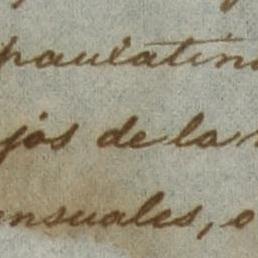 paulatin
jos de la
ensuales, o